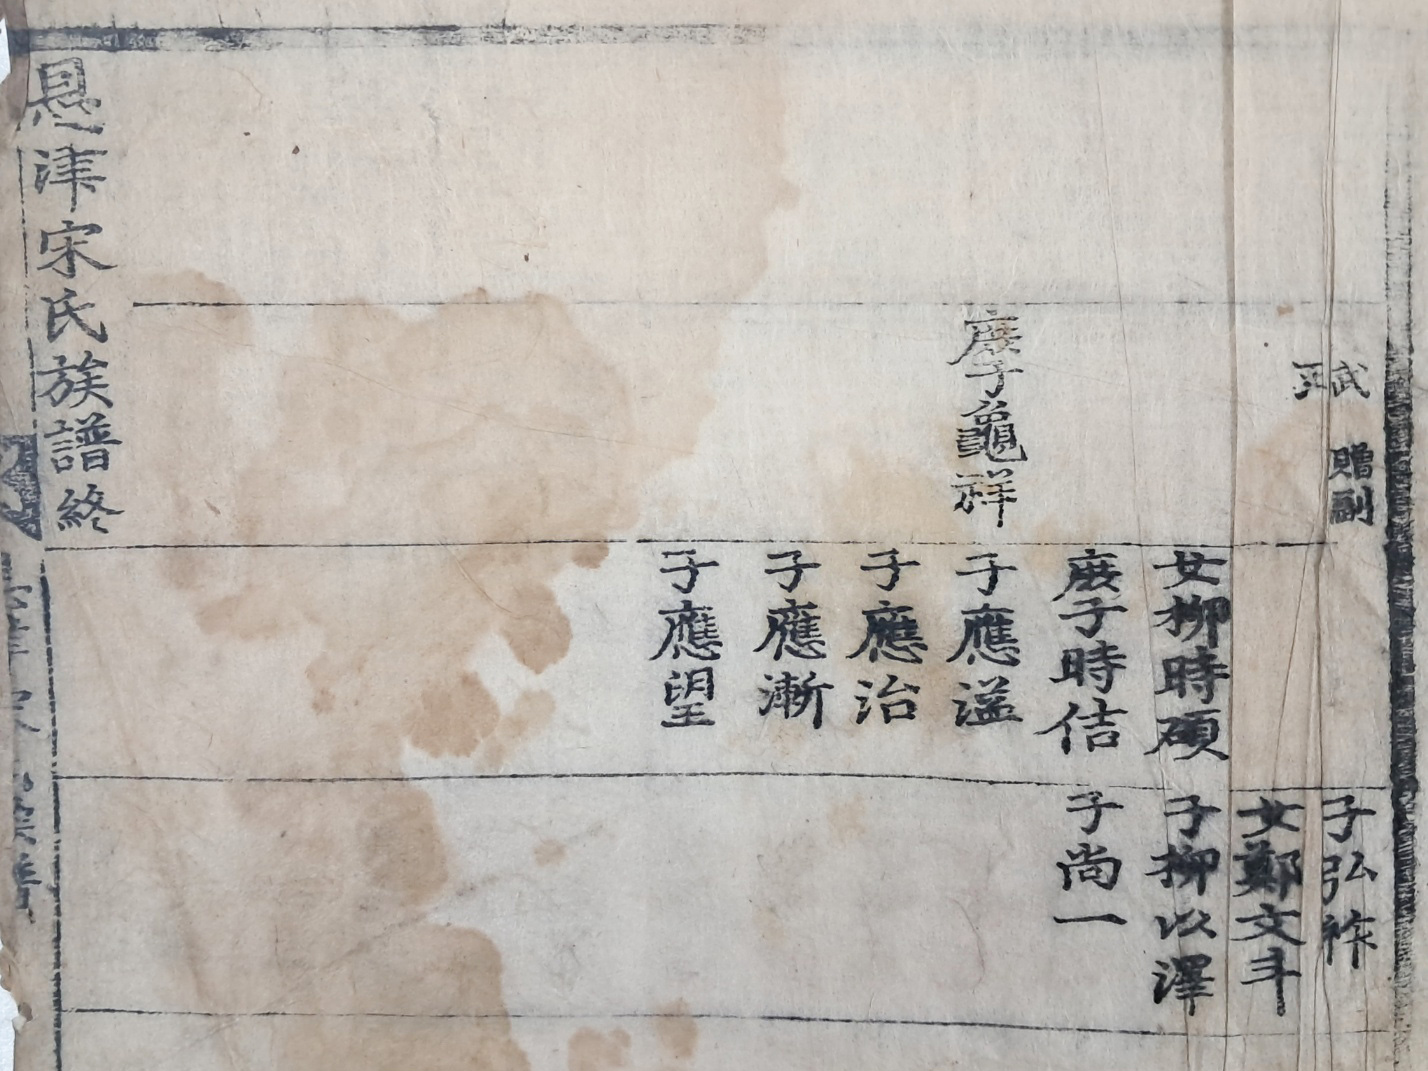 武
正
贈副
庶子龜祥
女柳時碩
庶子時佶
子應溢
子應治
子應漸
子應望
子弘祚
女鄭文斗
子柳以澤
子尙一
恩津宋氏族譜終